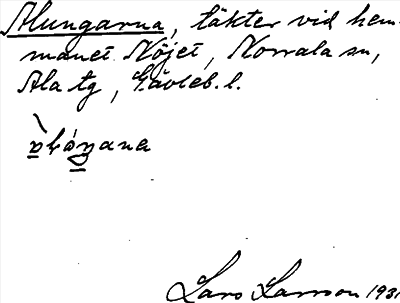 Slungarna, täkter vid hem-
manet Nöjet, Norrala sn,
Ala tg, Gävleb. l.
Lars Larsson 1931